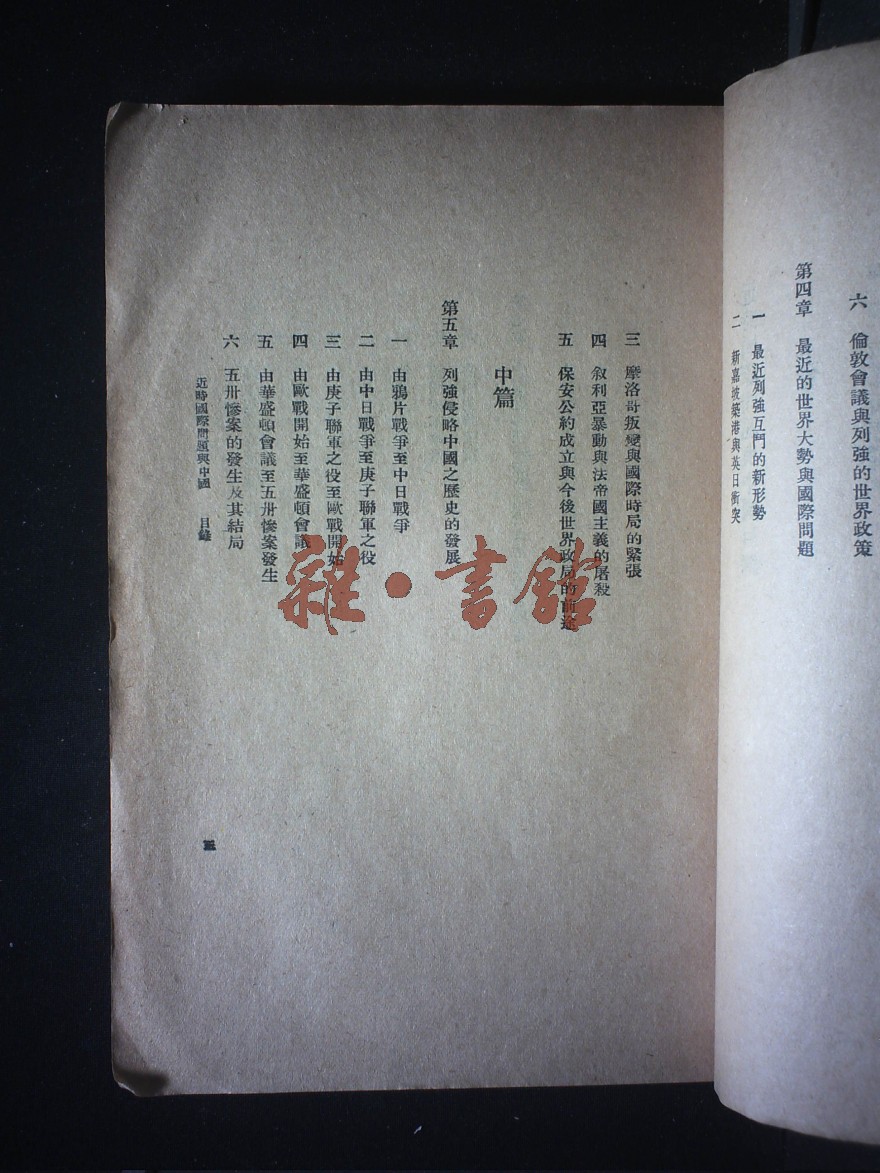 六　倫敦會議與列強的世界政策
第四章　最近的世界大勢與國際問題
一　最近列強互鬥的新形勢
二　新嘉坡築港與英日衝突
三　摩洛哥叛變與國際時局的緊張
四　敘利亞暴動與法帝國主義的屠殺
五　保安公約成立與今後世界政局的前途
中篇
第五章　列強侵略中國之歷史的發展
一　由鴉片戰爭至中日戰爭
二　由中日戰爭至庚子聯軍之役
三　由庚子聯軍之役至歐戰開始
四　由歐戰開始至華盛頓會議
五　由華盛頓會議至五卅慘案發生
六　五卅慘案的發生及其結局
近時國際問題與中國　目錄
三
雜·書館